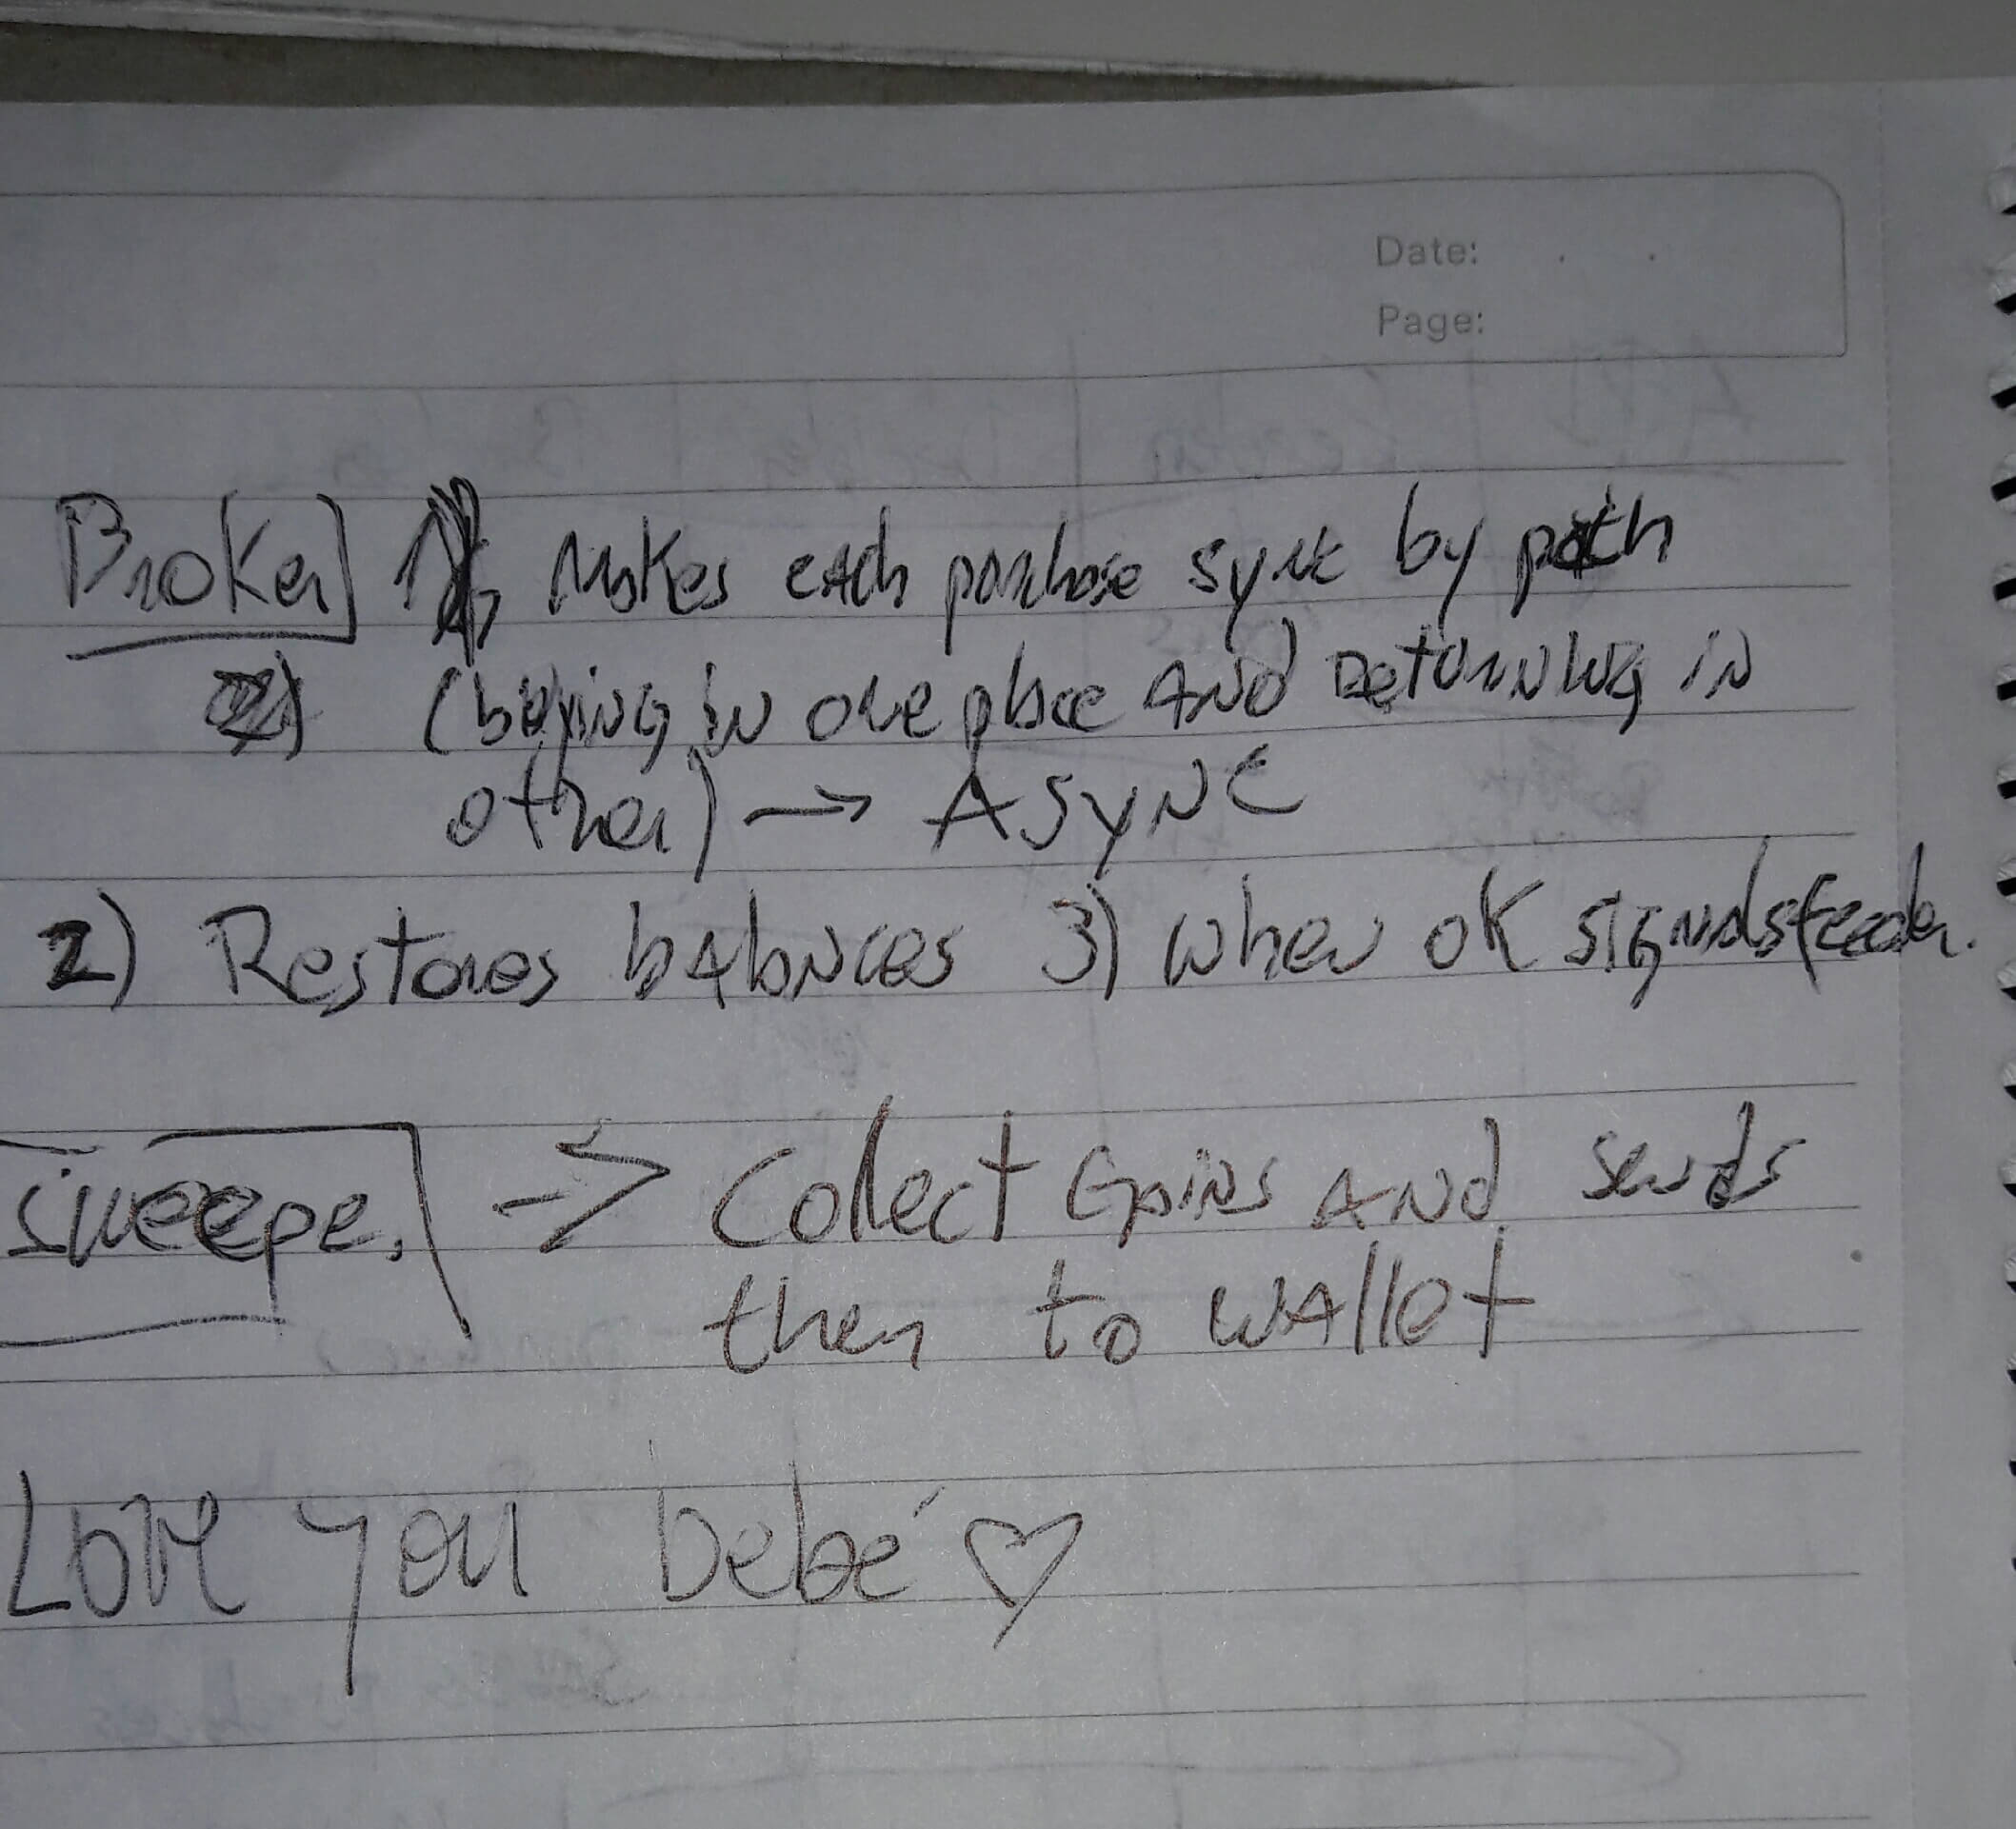 Date: . .
Page:
Broker 1) Makes each purchase sync by path
(buying in one place and returning in
other) → ASYNC
2) Restores balances 3) when ok signals feeder.
Sweeper -> Collect Gains and sends
then to wallet
Love you bebé ♡